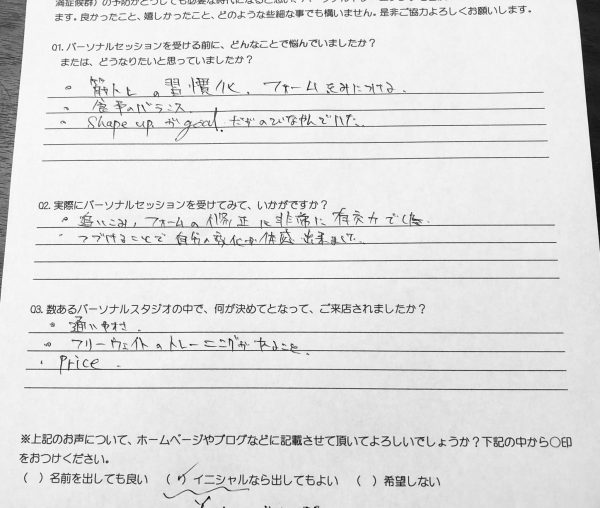 満症候群）の予防がとっても必要な時代になると思い、
ます。良かったこと、嬉しかったこと、どのような些細な事でも構いません。是非ご協力よろしくお願いします。
Q1. パーソナルセッションを受ける前に、どんなことで悩んでいましたか？
または、どうなりたいと思っていましたか？
筋トレの習慣化、フォームをみにつける
食事のバランス
Shape up が goal.
Q2. 実際にパーソナルセッションを受けてみて、いかがですか？
追いこみ、フォームの修正は非常に有効力でした
つづけることで自分の変化が体感出来ました
Q3. 数あるパーソナルスタジオの中で、何が決めてとなって、ご来店されましたか？
通いやすさ.
フリーウェイトのトレーニングが
Price
※上記のお声について、ホームページやブログなどに記載させて頂いてよろしいでしょうか？下記の中から〇印
をおつけください。
（ ）名前を出しても良い （ ）イニシャルなら出してもよい （ ）希望しない